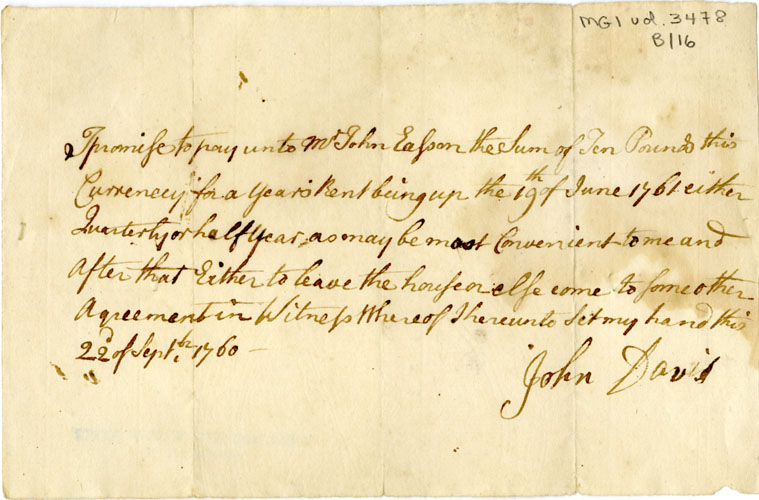 MG1 vol. 3478
B/16
I promise to pay unto Mr John Easson the Sum of Ten Pounds this
Currenecy for a years Rent being up the 19th of June 1761 either
Quarterly or half Year as may be most Convenient to me and
after that Either to leave the house or else come to some other
Agreement in Witness Whereof I hereunto Set my hand this
22d of Septr 1760
John Davis